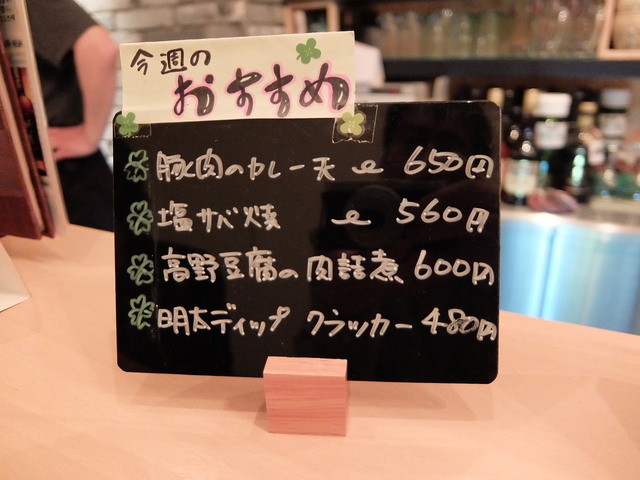 今週の
おすすめ
豚肉のカレー天 650円
塩サバ焼 560円
高野豆腐の肉詰煮 600円
明太ディップ クラッカー 480円